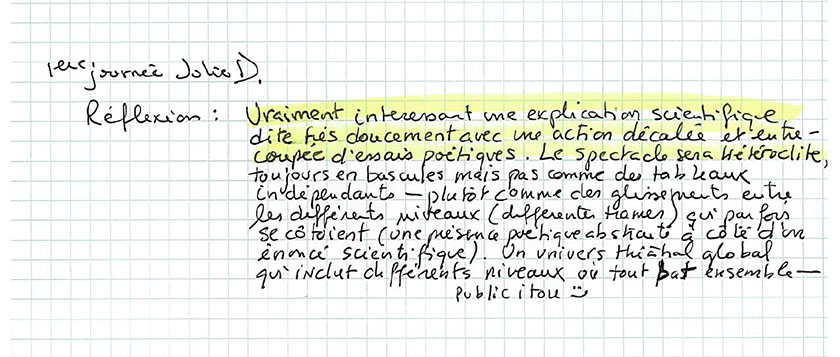 1ere journée Jolie D.
Réflexion : Vraiment interessant une explication scientifique,
dite très doucement avec une action décalée et entre-
coupée d'essais poétiques. Le spectacle sera Hétéroclite,
toujours en bascules mais pas comme des tableaux
indépendants — plutôt comme des glissements entre
les différents niveaux (differentes trames) qui parfois
se côtoient (une présence poétique abstraite à côté d'un
énoncé scientifique). Un univers théâtral global
qui inclut différents niveaux où tout bat ensemble —
public itou